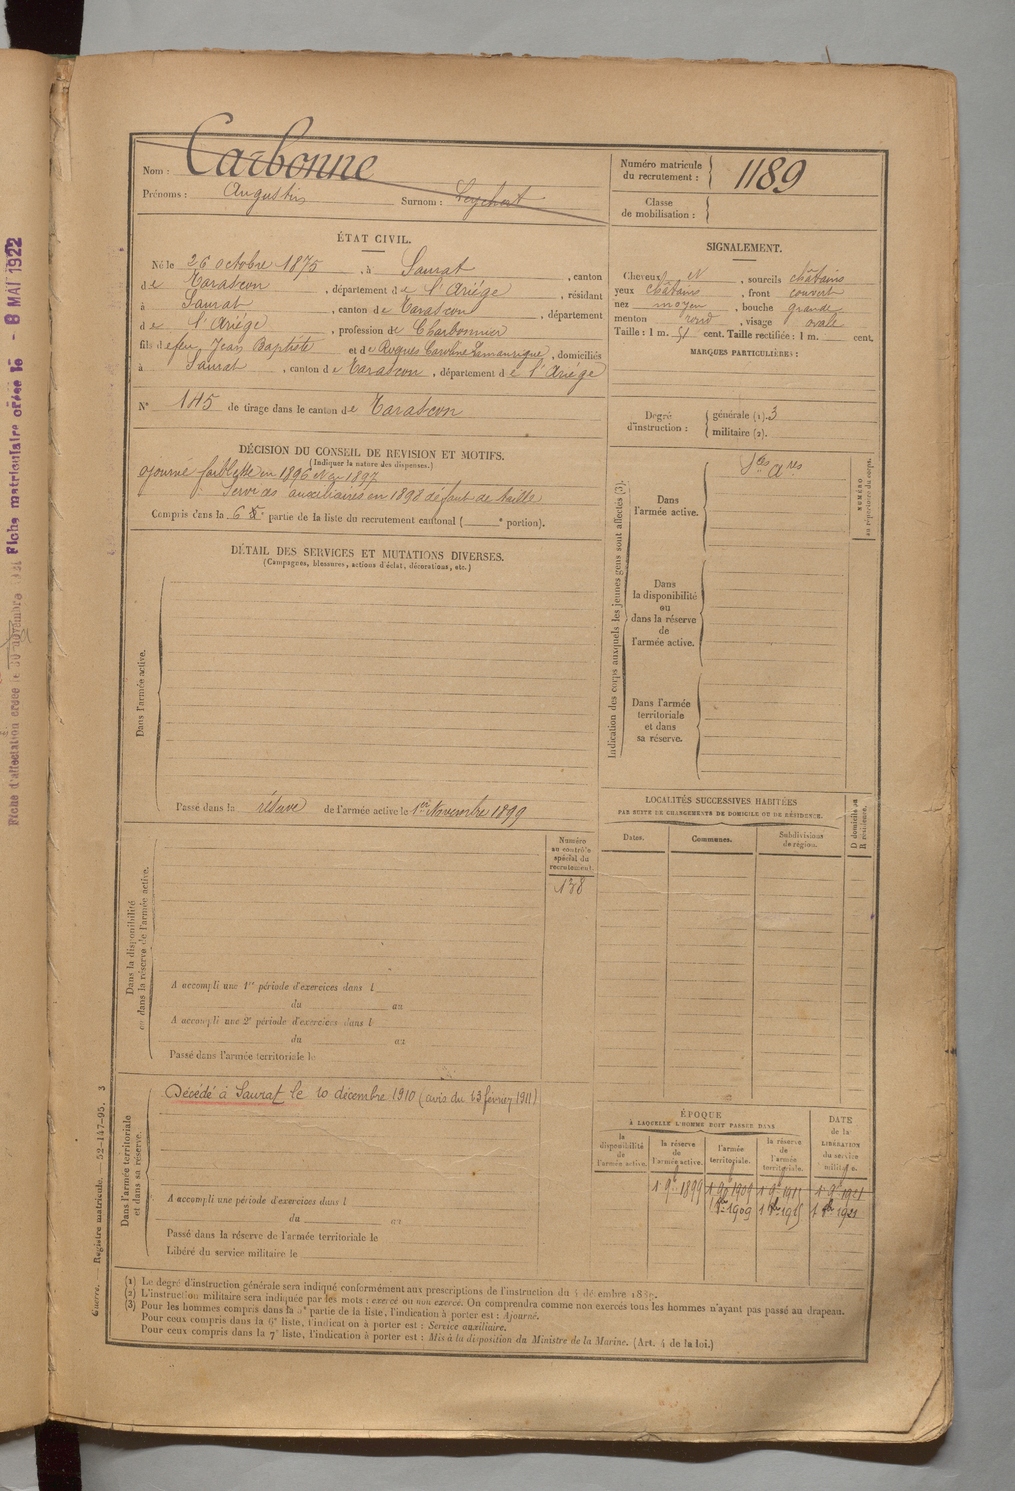 Fiche d'affectation créée le 30 novembre
Fiche matriculaire créée le - 8 MAI 1922
Nom : Carbonne
Prénoms : Augustin Surnom :
Numéro matricule du recrutement : 1189
Classe de mobilisation :
ÉTAT CIVIL.
Né le 26 octobre 1875, à Saurat, canton
de Tarascon, département de l'Ariége, résidant
à Saurat, canton de Tarascon, département
de l'Ariége, profession de Charbonnier
fils de feu Jean Baptiste et de Roques Caroline, domiciliés
à Saurat, canton de Tarascon, département de l'Ariége
N° 145 de tirage dans le canton de Tarascon
SIGNALEMENT.
Cheveux, sourcils châtains
yeux châtains, front couvert
nez moyen, bouche grande
menton rond, visage ovale
Taille : 1 m. 51 cent. Taille rectifiée : 1 m. cent.
MARQUES PARTICULIÈRES :
Degré d'instruction : générale (1). 3
militaire (2).
DÉCISION DU CONSEIL DE REVISION ET MOTIFS.
(Indiquer la nature des dispenses.)
ajourné faiblesse en 1896 et en 1897
Services auxiliaires en 1898 défaut de taille
Compris dans la 6e partie de la liste du recrutement cantonal ( e portion).
DÉTAIL DES SERVICES ET MUTATIONS DIVERSES.
(Campagnes, blessures, actions d'éclat, décorations, etc.)
Dans l'armée active.
Passé dans la réserve de l'armée active le 1er Novembre 1899
Indication des corps auxquels les jeunes gens sont affectés (3).
Dans
l'armée active.
Sces Ares
NUMÉRO
au répertoire du corps.
Dans
la disponibilité
ou
dans la réserve
de
l'armée active.
Dans l'armée
territoriale
et dans
sa réserve.
LOCALITÉS SUCCESSIVES HABITÉES
PAR SUITE DE CHANGEMENTS DE DOMICILE OU DE RÉSIDENCE.
Dates. Communes. Subdivisions de région.
D domicile ou R résidence.
Dans la disponibilité
ou dans la réserve de l'armée active.
Numéro
au contrôle
spécial du
recrutement.
138
A accompli une 1re période d'exercices dans l
du au
A accompli une 2e période d'exercices dans l
du au
Passé dans l'armée territoriale le
Dans l'armée territoriale
et dans sa réserve.
Décédé à Saurat le 10 décembre 1910 (avis du 23 février 1911)
A accompli une période d'exercices dans l
du au
Passé dans la réserve de l'armée territoriale le
Libéré du service militaire le
ÉPOQUE
À LAQUELLE L'HOMME DOIT PASSER DANS
la disponibilité de l'armée active.
la réserve de l'armée active.
l'armée territoriale.
la réserve de l'armée territoriale.
DATE de la LIBÉRATION du service militaire.
1 9bre 1899 1 9bre 1909 1 9bre 1915 1 9bre 1921
Guerre. — Registre matricule. 52-147-95. 3
(1) Le degré d'instruction générale sera indiqué conformément aux prescriptions de l'instruction du
(2) L'instruction militaire sera indiquée par les mots : exercé ou non exercé. On comprendra comme non exercés tous les hommes n'ayant pas passé au drapeau.
(3) Pour les hommes compris dans la 5e partie de la liste, l'indication à porter est : Ajourné.
Pour ceux compris dans la 6e liste, l'indication à porter est : Service auxiliaire.
Pour ceux compris dans la 7e liste, l'indication à porter est : Mis à la disposition du Ministre de la Marine. (Art. 4 de la loi.)